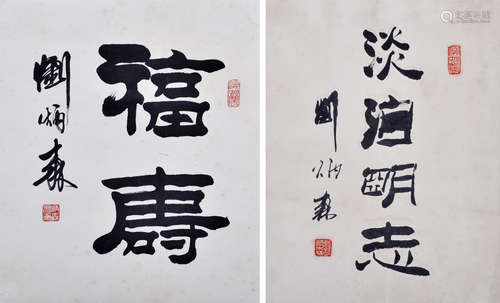 福壽
劉炳森
淡泊明志
劉炳森